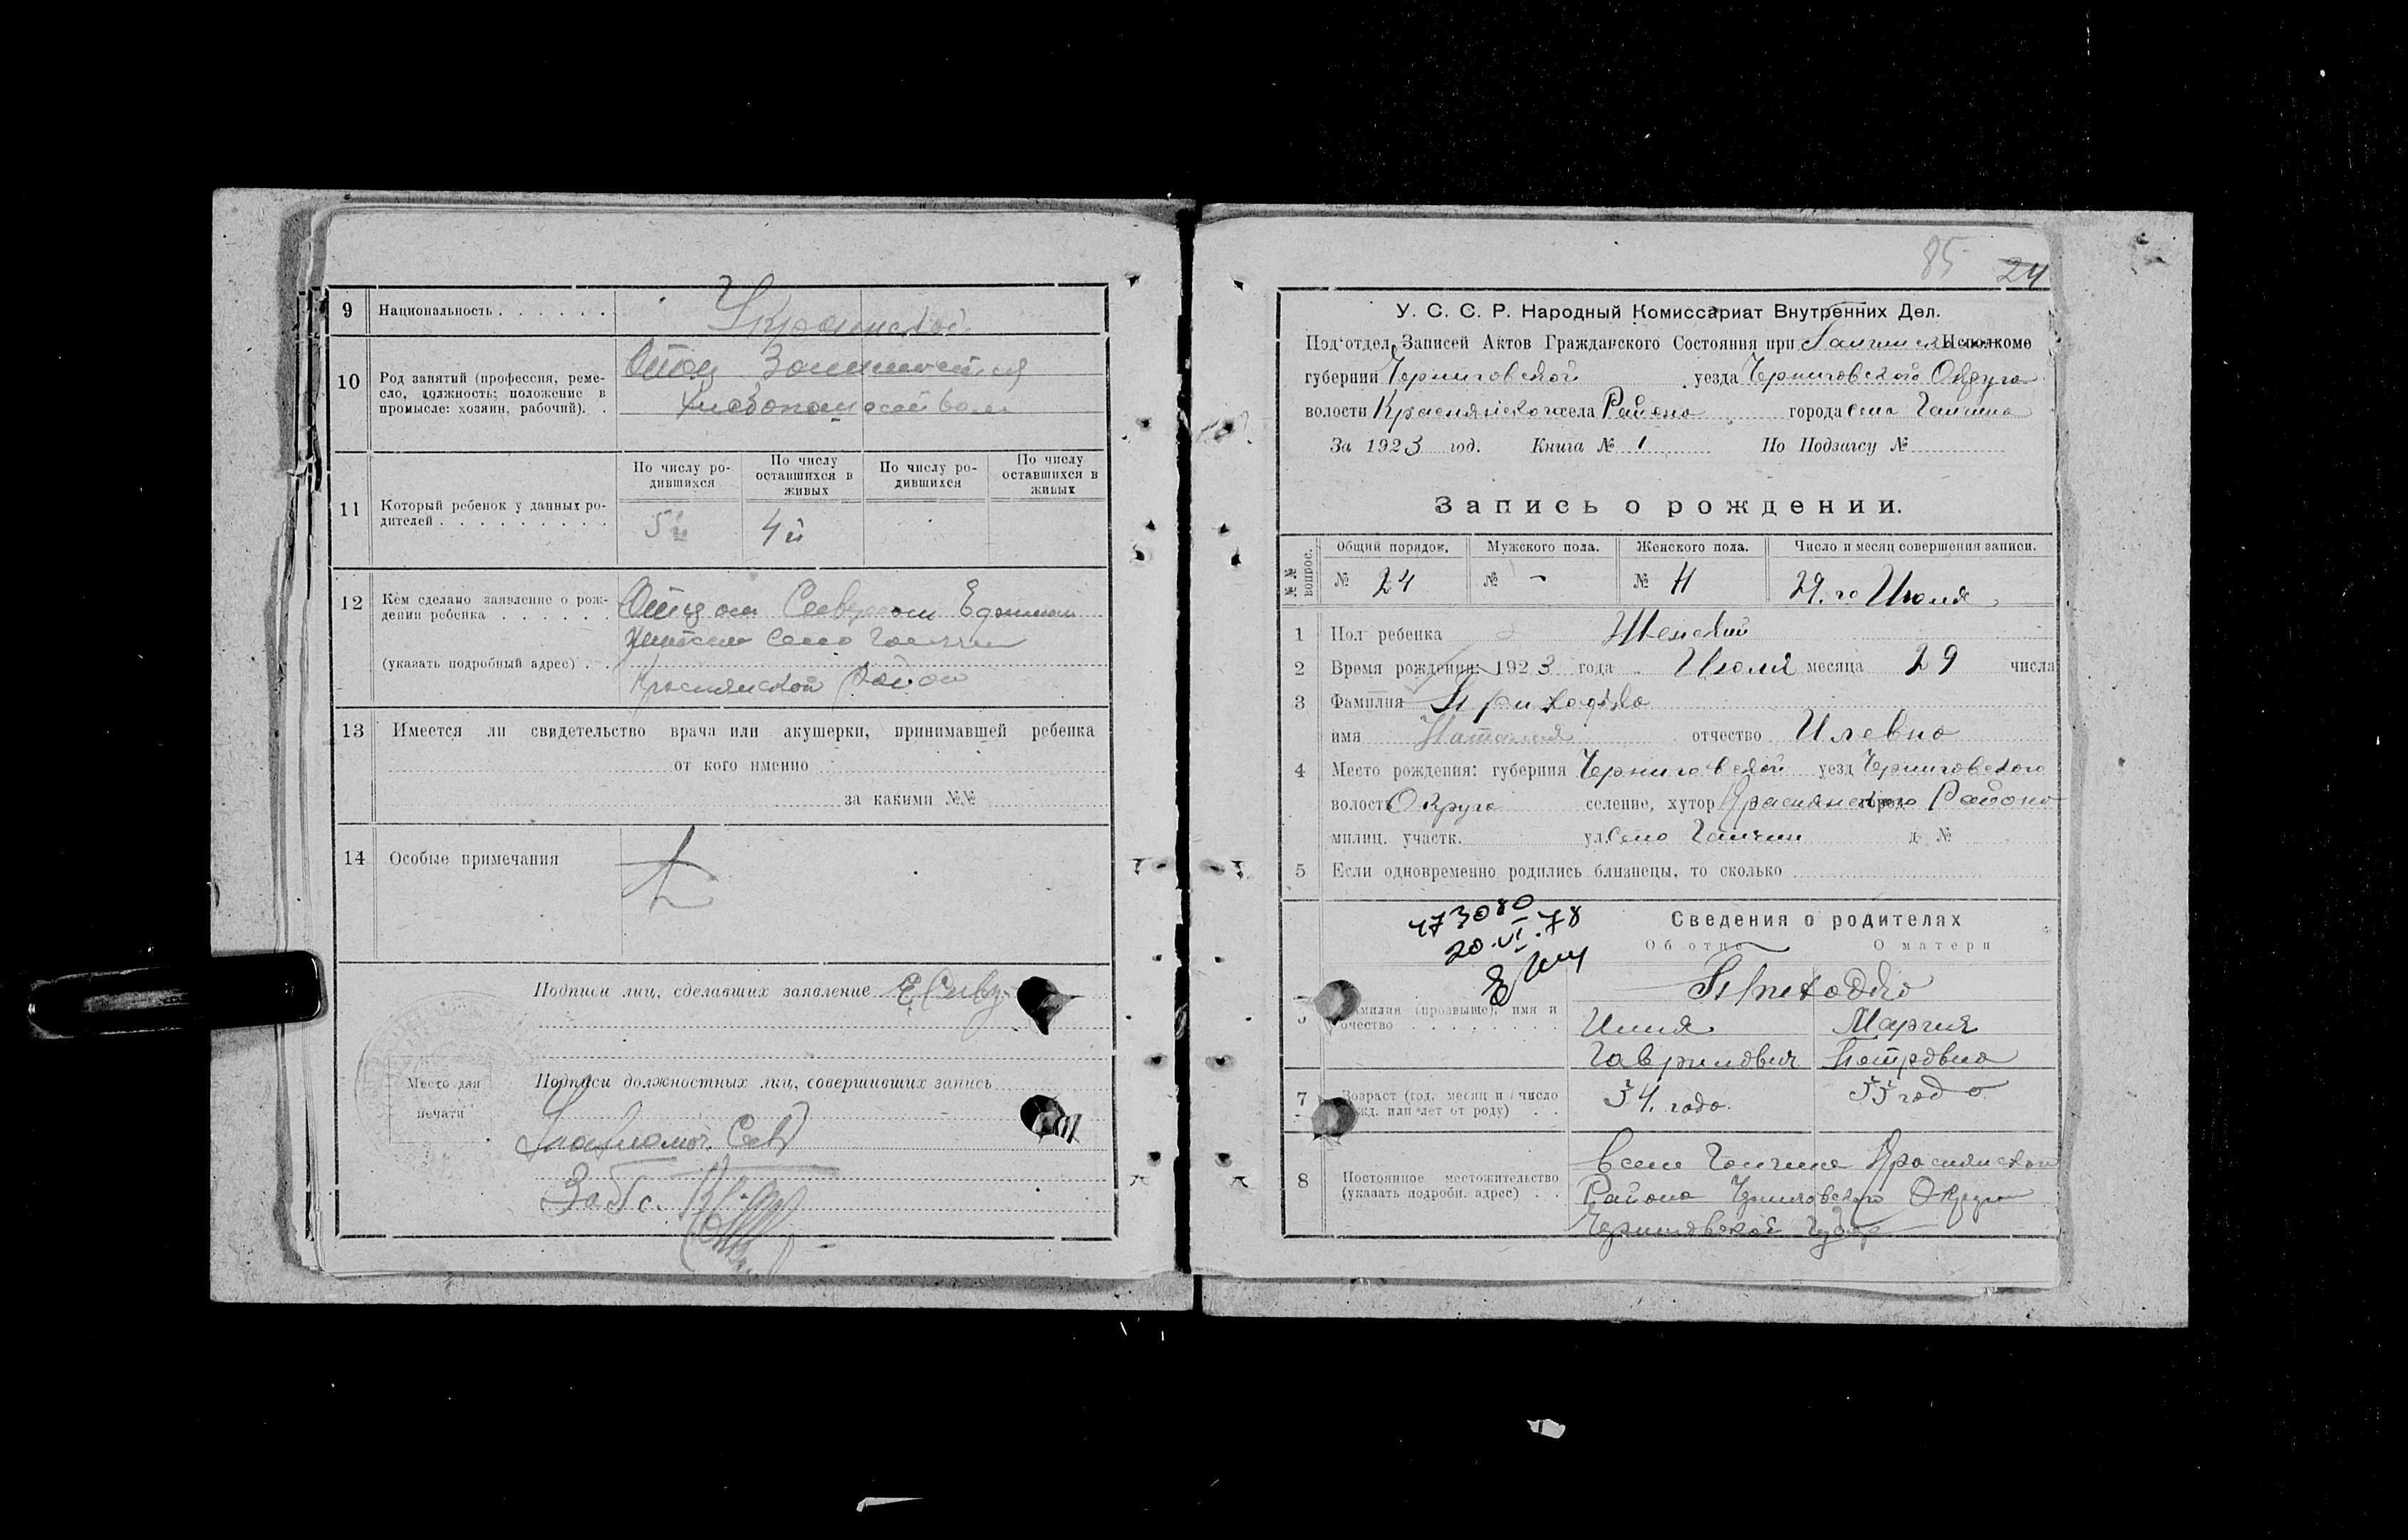 9 Национальность . . . . . . Украинской
10 Род занятий (профессия, реме-
сло, должность; положение в
промысле: хозяин, рабочий). .
Отец Занимается
Хлебопашеством
11 Который ребенок у данных ро-
дителей . . . . . . . . .
По числу ро-
дившихся
По числу
оставшихся в
живых
По числу ро-
дившихся
По числу
оставшихся в
живых
5й 4й
12 Кем сделано заявление о рож-
дении ребенка . . . . . .
(указать подробный адрес) . .
село
Район
13 Имеется ли свидетельство врача или акушерки, принимавшей ребенка
от кого именно
за какими №№
14 Особые примечания
Подписи лиц, сделавших заявление
Место для
печати
Подписи должностных лиц, совершивших запись
85 24
У. С. С. Р. Народный Комиссариат Внутренних Дел.
Под'отдел Записей Актов Гражданского Состояния при Исполкоме
губернии Черниговской уезда Черниговского Округа
волости Краснянского села Района города село
За 1923 год. Книга № 1 По Подзагсу №
Запись о рождении.
№№ вопрос.
Общий порядок. Мужского пола. Женского пола. Число и месяц совершения записи.
№ 24 № - № 11 29.го Июля
1 Пол ребенка Женский
2 Время рождения: 1923 года Июля месяца 29 числа
3 Фамилия Приходько
имя Наталия отчество Илевна
4 Место рождения: губерния Черниговской уезд Черниговского
волость Округа селение, хутор Краснянского город Района
милиц. участк. ул. Село д №
5 Если одновременно родились близнецы, то сколько
473080
20.VI.78
Сведения о родителях
Об отце О матери
Приходько
Фамилия (прозвыще), имя и
отчество . . . . . . . .
Илия Мария
Гаврилович Петровна
7 Возраст (год, месяц и число
рожд. или лет от роду) . .
34. года. 33 года
8 Постоянное местожительство
(указать подробн. адрес) . .
в селе Краснянского
Района Черниговского Округа
Черниговской Губер